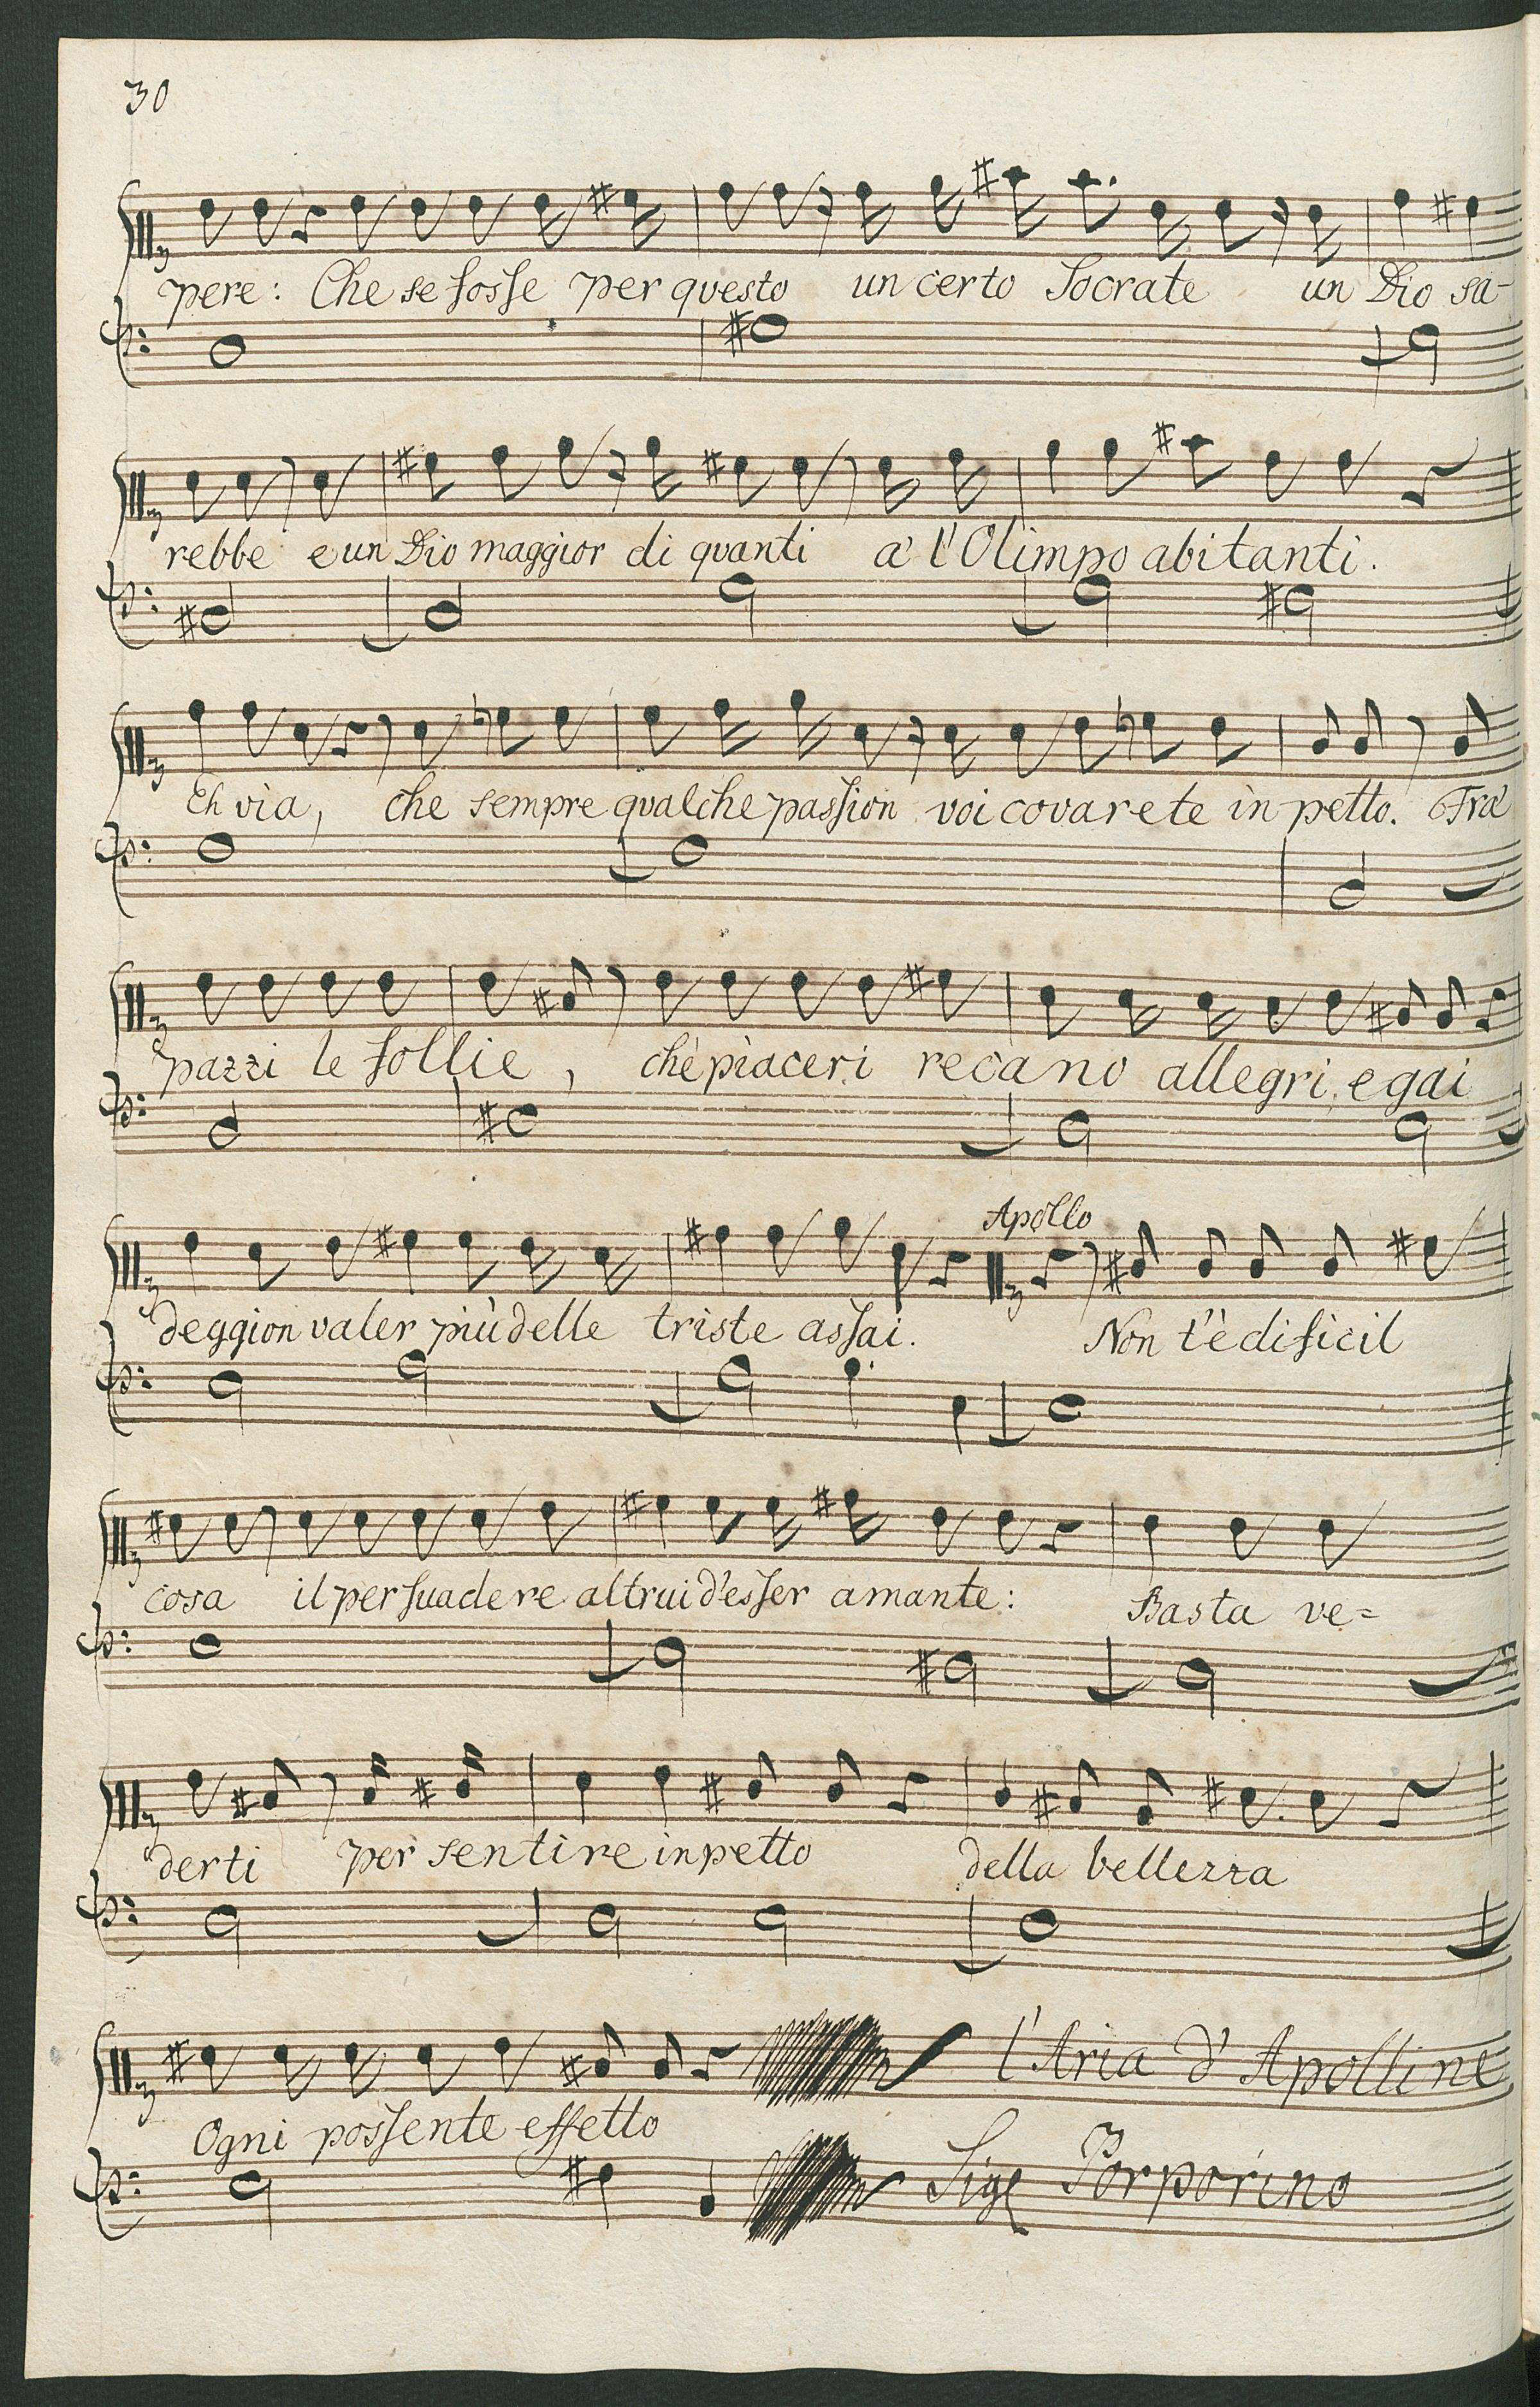 30
pere: Che se fosse per questo un certo Socrate un Dio sa-
rebbe e un Dio maggior di quanti a' l'Olimpo abitanti.
Eh via, che sempre qualche passion voi covarete in petto. Fra'
pazzi le follie, che piaceri recano allegri, e gai
Apollo
deggion valer più delle triste assai. Non t'è dificil
cosa il persuadere altrui d'esser amante: Basta ve=
derti per sentire in petto della bellezza
Ogni possente effetto
l'Aria d'Apolline
Sigr Porporino